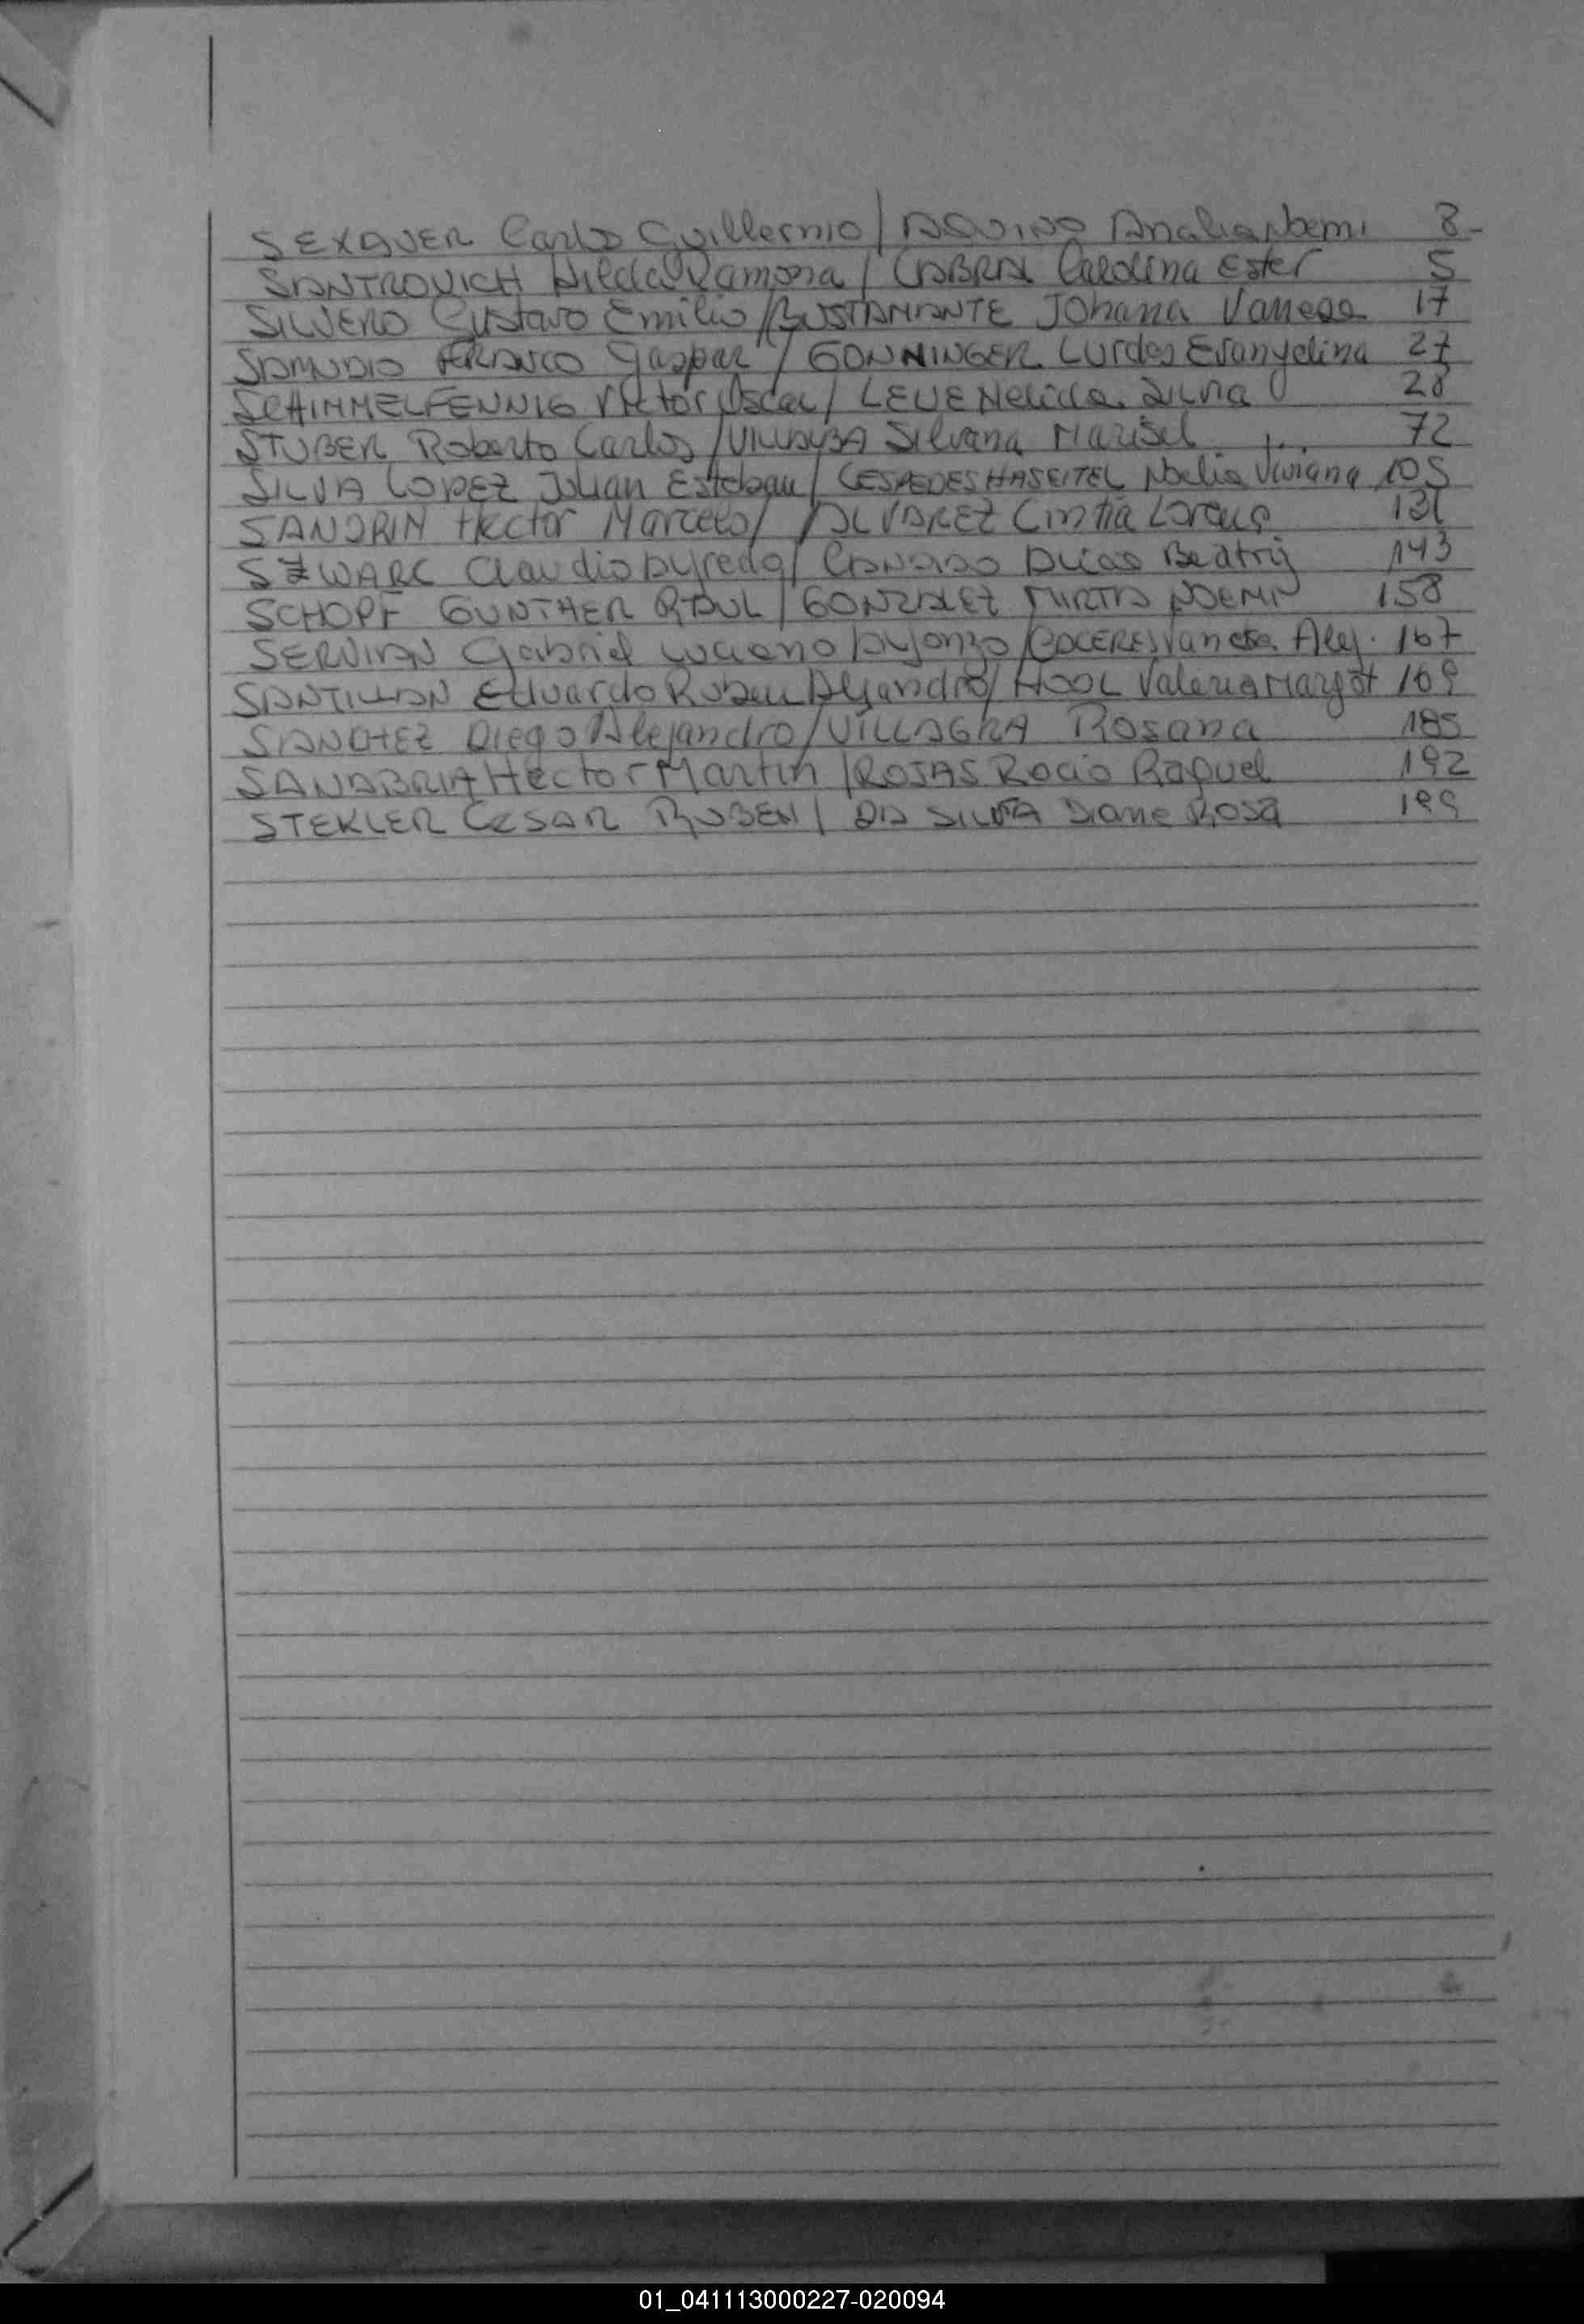 SEXAUER Carlos Guillermo / AQUINO Analia Noemi 8-
SANTROVICH Nilda Ramona / CABRAL Carolina Ester 5
SILVERO Gustavo Emilio / BUSTAMANTE Johana Vanesa 17
SAMUDIO FRANCO Gaspar / GONNINGER Lurdes Evangelina 27
SCHIMMELFENNIG Victor Oscar / LEUE Nelida Silvia 28
STUBER Roberto Carlos / VILLALBA Silvana Marisel 72
SILVA LOPEZ Julian Esteban / CESPEDES HASEITEL Noelia Viviana 105
SANDRIN Hector Marcelo / ALVAREZ Cintia Lorena 131
SZWARC Claudio Alfredo / Beatriz 143
SCHOPF GUNTHER RAUL / GONZALEZ MIRTA NOEMI 158
SERVIAN Gabriel Luciano Alfonzo / COCERES Vanesa Alej. 167
SANTILLAN Eduardo Ruben Alejandro / HOOL Valeria Margot 169
SANCHEZ Diego Alejandro / VILLAGRA Rosana 185
SANABRIA Hector Martin / ROJAS Rocio Raquel 192
STEKLER CESAR RUBEN / DA SILVA Diane Rosa 199
01_041113000227-020094